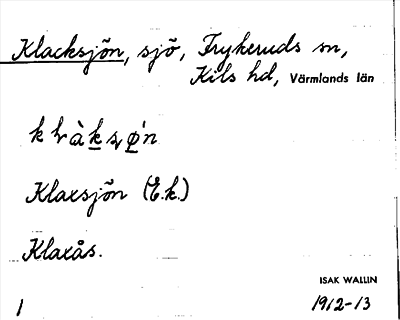 Klacksjön, sjö, Frykeruds sn,
Kils hd, Värmlands län
Klaxsjön (E.k.)
Klaxås.
ISAK WALLIN
1 1912-13